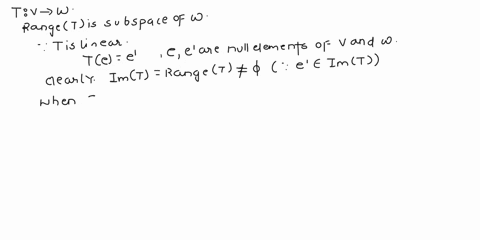 T:V→W.
Range(T) is subspace of W.
∵ T is linear.
T(e) = e' , e, e' are null elements of V and W.
clearly. Im(T) = Range(T) ≠ ϕ (∵ e' ∈ Im(T))
when -